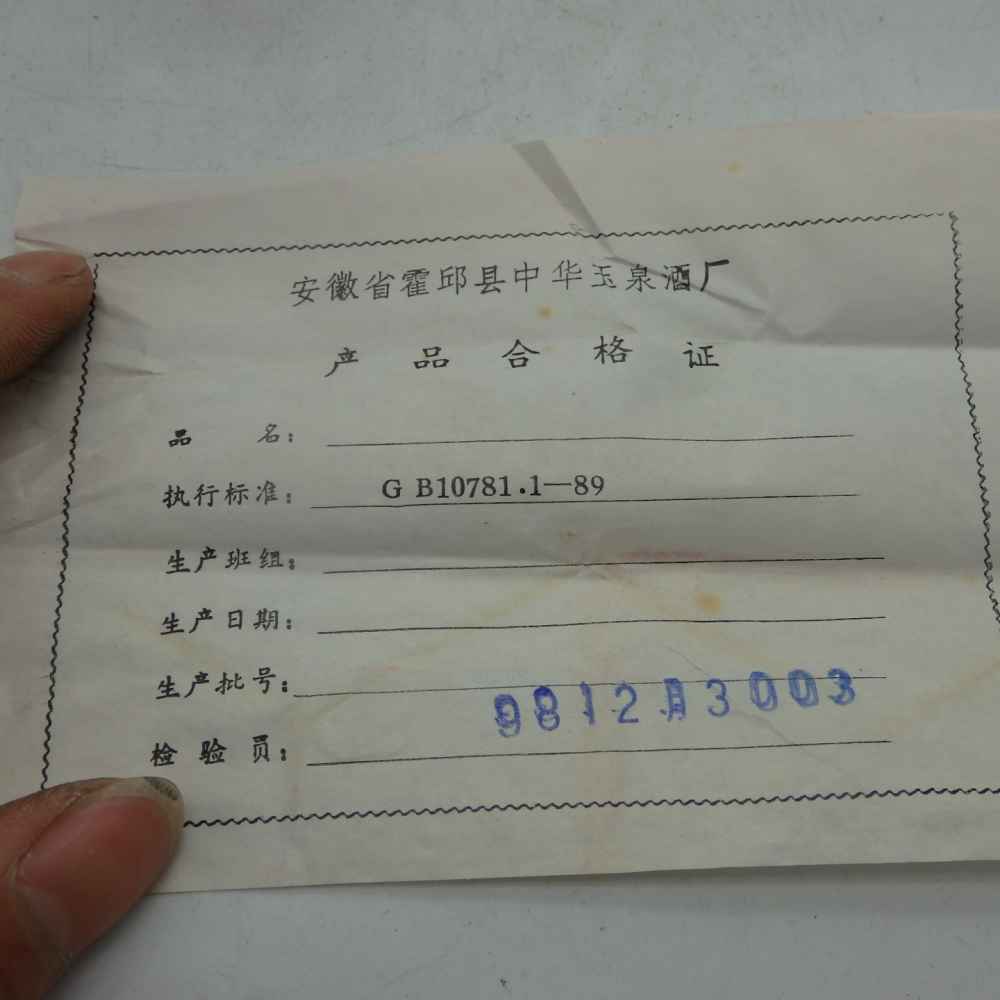 安徽省霍邱县中华玉泉酒厂
产品合格证
品名：
执行标准： GB10781.1—89
生产班组：
生产日期：
生产批号：
9812月3003
检验员：